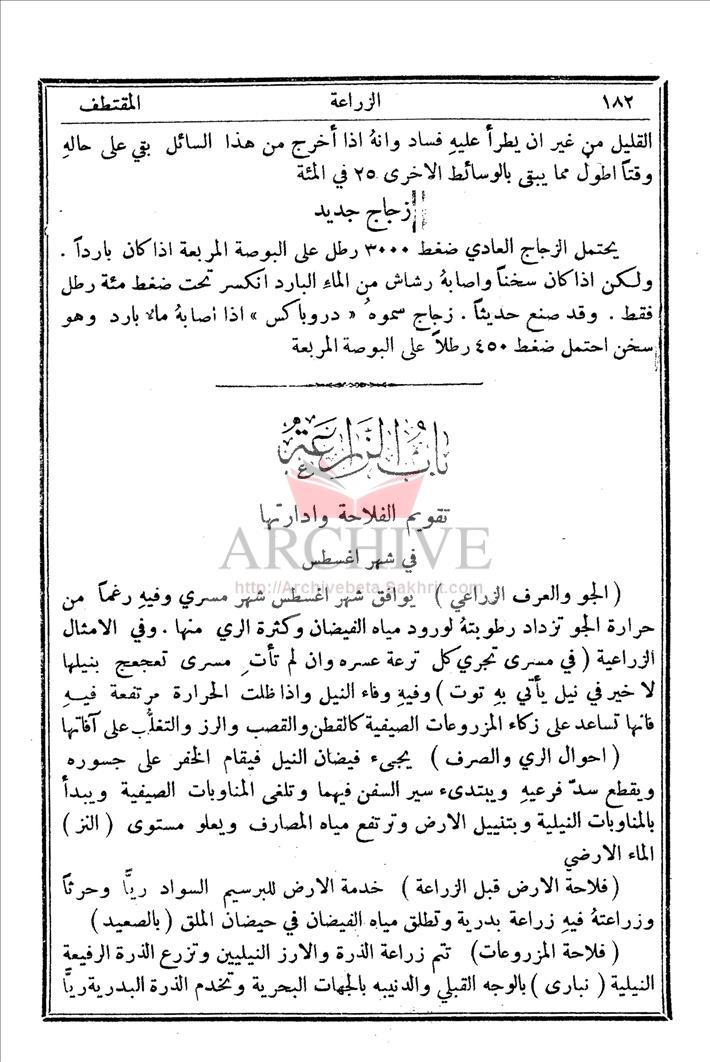 ١٨٢ الزراعة المقتطف
القليل من غير ان يطرأ عليهِ فساد وانهُ اذا أخرج من هذا السائل بقي على حالهِ
وقتاً اطول مما يبقى بالوسائط الاخرى ٢٥ في المئة
زجاج جديد
يحتمل الزجاج العادي ضغط ٣٠٠٠ رطل على البوصة المربعة اذا كان بارداً .
ولكن اذا كان سخناً واصابهُ رشاش من الماء البارد انكسر تحت ضغط مئة رطل
فقط . وقد صنع حديثاً . زجاج سموهُ « دروباكس » اذا اصابهُ ماء بارد وهو
سخن احتمل ضغط ٤٥٠ رطلاً على البوصة المربعة
باب الزراعة
تقويم الفلاحة وادارتها
ARCHIVE
في شهر اغسطس
http://Archivebeta.Sakhrit.com
( الجو والعرف الزراعي ) يوافق شهر اغسطس شهر مسري وفيهِ رغماً من
حرارة الجو تزداد رطوبتهُ لورود مياه الفيضان وكثرة الري منها . وفي الامثال
الزراعية ( في مسرى تجري كل ترعة عسره وان لم تأتِ مسرى تعجعج بنيلها
لا خير في نيل يأتي بهِ توت ) وفيهِ وفاء النيل واذا ظلت الحرارة مرتفعة فيهِ
فانها تساعد على زكاء المزروعات الصيفية كالقطن والقصب والرز والتغلُّب على آفاتها
( احوال الري والصرف ) يجيء فيضان النيل فيقام الخفر على جسوره
ويقطع سدّ فرعيهِ ويبتدىء سير السفن فيهما وتلغى المناوبات الصيفية ويبدأ
بالمناوبات النيلية وبتنييل الارض وترتفع مياه المصارف ويعلو مستوى ( النز )
الماء الارضي
( فلاحة الارض قبل الزراعة ) خدمة الارض للبرسيم السواد ريًّا وحرثاً
وزراعتهُ فيهِ زراعة بدرية وتطلق مياه الفيضان في حيضان الملق ( بالصعيد )
( فلاحة المزروعات ) تتم زراعة الذرة والارز النيليين وتزرع الذرة الرفيعة
النيلية ( نبارى ) بالوجه القبلي والدنيبه بالجهات البحرية وتخدم الذرة البدرية ريًّا